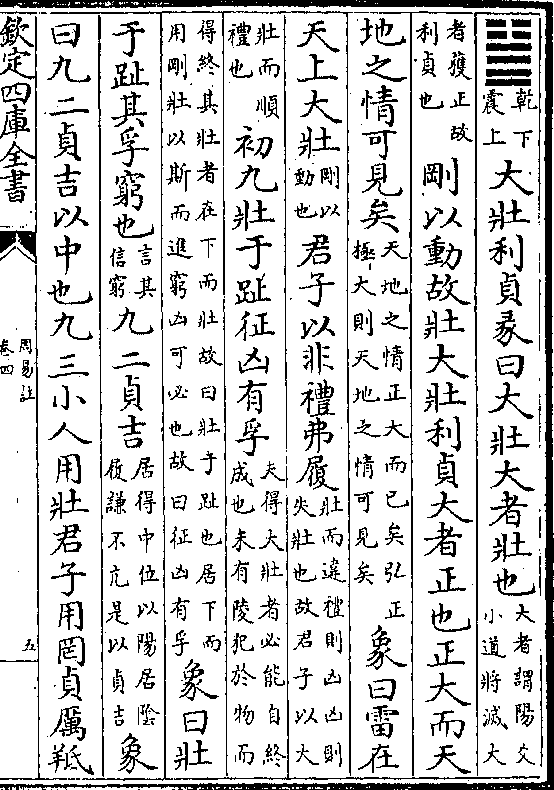 乾下
震上
大壯利貞彖曰大壯大者壯也
大者謂陽爻
小道將滅大
者獲正故
利貞也
剛以動故壯大壯利貞大者正也正大而天
地之情可見矣
天地之情正大而已矣弘正
極大則天地之情可見矣
象曰雷在
天上大壯
剛以
動也
君子以非禮弗履
壯而違禮則凶凶則
失壯也故君子以大
壯而順
禮也
初九壯于趾征凶有孚
夫得大壯者必能自終
成也未有陵犯於物而
得終其壯者在下而壯故曰壯于趾也居下而
用剛壯以斯而進窮凶可必也故曰征凶有孚
象曰壯
于趾其孚窮也
言其
信窮
九二貞吉
居得中位以陽居陰
履謙不亢是以貞吉
象
曰九二貞吉以中也九三小人用壯君子用罔貞厲羝
欽定四庫全書
周易註
卷四
五